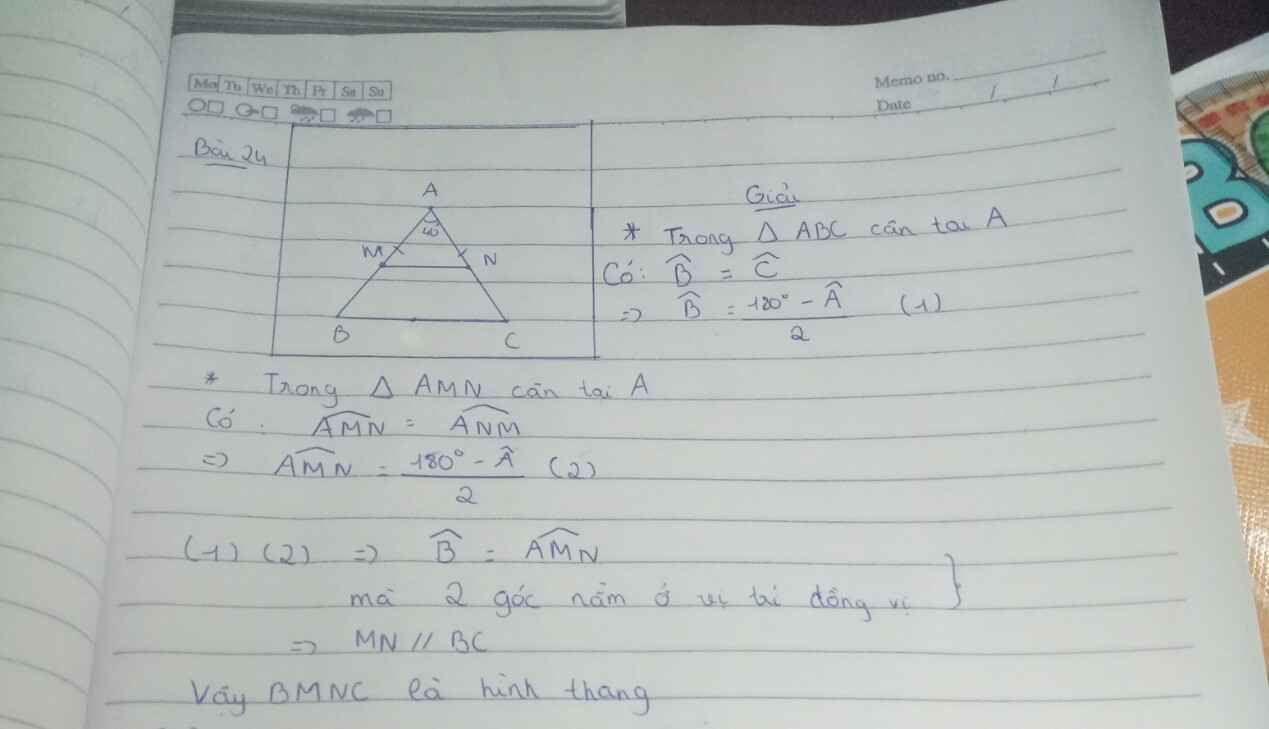 Mo Tu We Th Fr Sa Su
Memo no.
Date / /
Bài 24
A
40°
M
N
B
C
Giải
* Trong Δ ABC cân tại A
Có: B̂ = Ĉ
=> B̂ = (180° - Â)/2 (1)
* Trong Δ AMN cân tại A
Có: \widehat{AMN} = \widehat{ANM}
=> \widehat{AMN} = (180° - Â)/2 (2)
(1) (2) => B̂ = \widehat{AMN}
mà 2 góc nằm ở vị trí đồng vị }
=> MN // BC
Vậy BMNC là hình thang
B